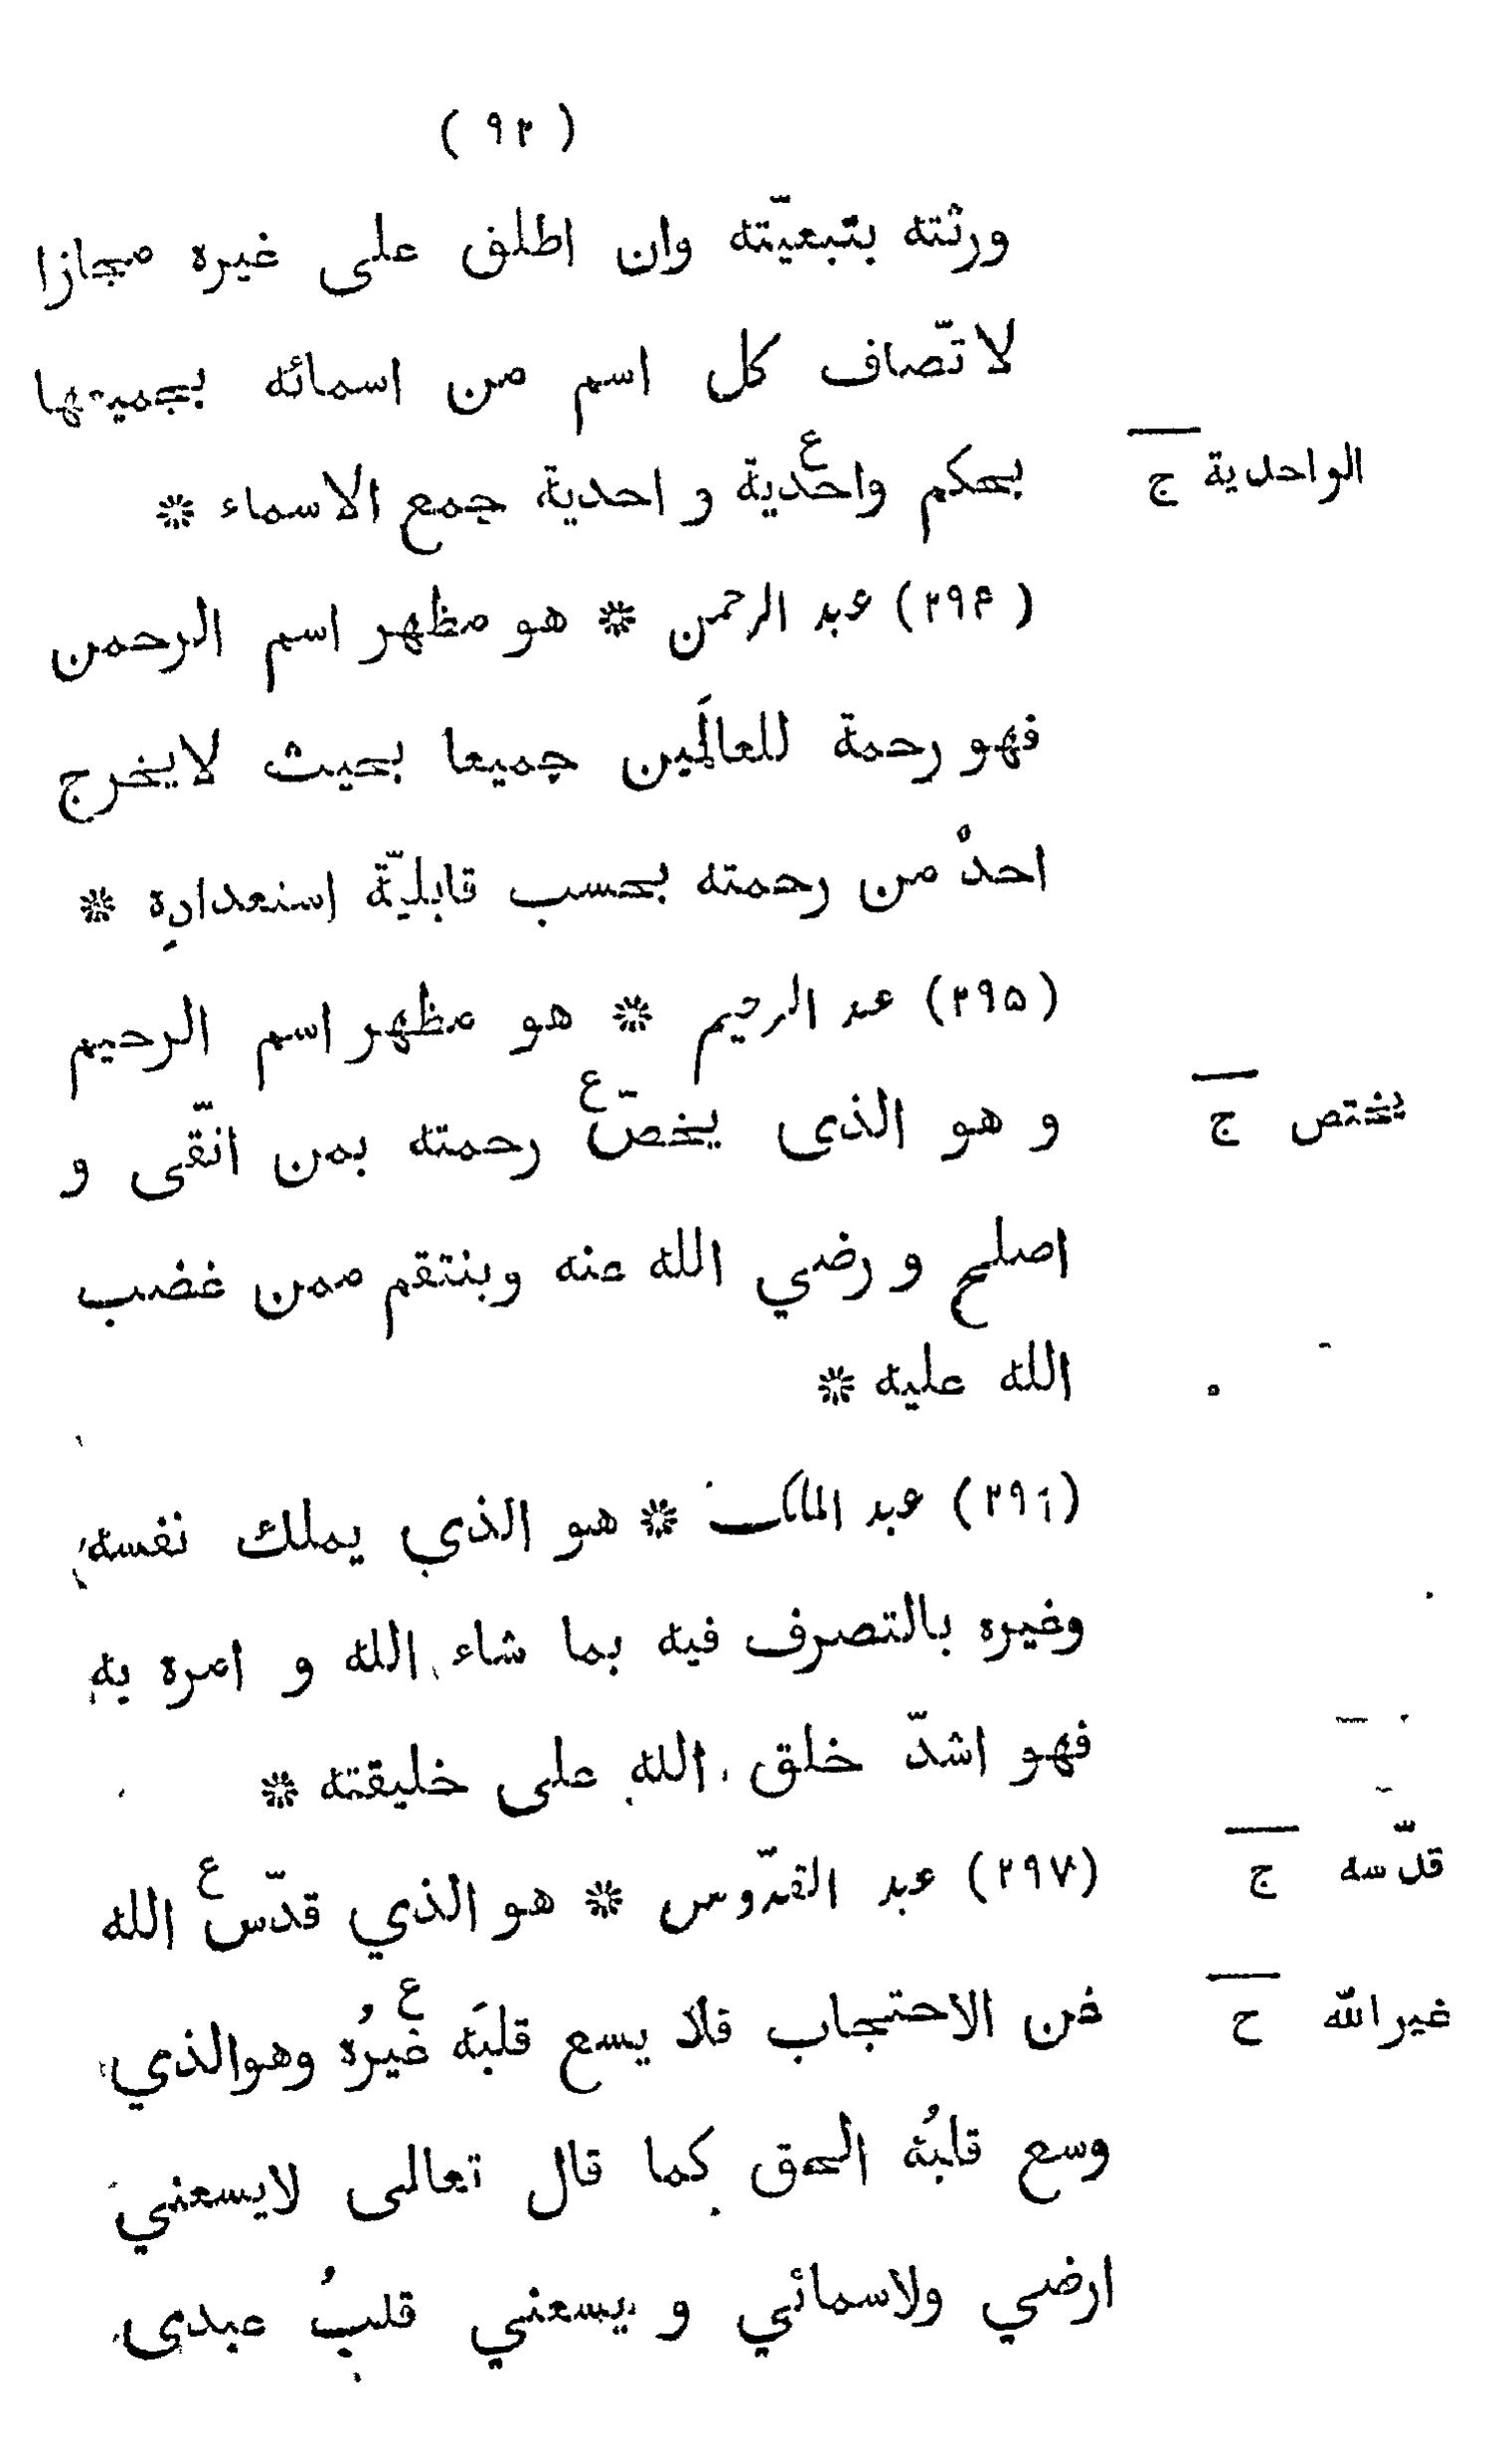 ( ٩٢ )
ورثته بتبعيّته وان اطلق على غيره مجازا
لاتّصاف كل اسم من اسمائه بجميعها
بحكم واحديةع و احدية جمع الاسماء * الواحدية ج
(٢٩۴) عبد الرحمن * هو مظهر اسم الرحمن
فهو رحمة للعالَمين جميعا بحيث لايخرج
احدٌ من رحمته بحسب قابليّة استعدادِه *
(٢٩۵) عبد الرحيم * هو مظهر اسم الرحيم
و هو الذى يخصّع رحمته بمن اتّقى و يختص ج
اصلح و رضي الله عنه وينتقم ممن غضب
الله عليه *
(٢٩٦) عبد الملك * هو الذي يملك نفسه
وغيره بالتصرف فيه بما شاء الله و امره به
فهو اشدّ خلق الله على خليقته *
(٢٩٧) عبد القدّوس * هو الذي قدّسع الله قدّسه ج
عن الاحتجاب فلا يسع قلبَه غيرُهع وهوالذي غيرالله ح
وسع قلبُه الحق كما قال تعالى لايسعني
ارضي ولاسمائي و يسعني قلبُ عبدى